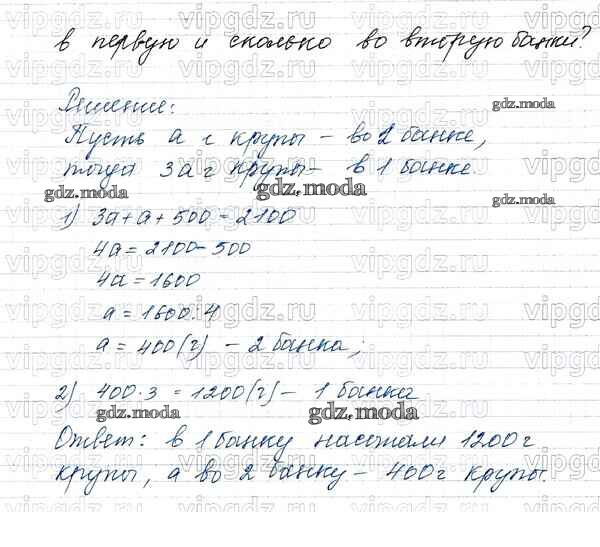 в первую и сколько во вторую банки?
Решение:
Пусть а г крупы – во 2 банке,
тогда 3а г крупы – в 1 банке
1) 3а + а + 500 = 2100
4а = 2100 - 500
4а = 1600
а = 1600 : 4
а = 400 (г) – 2 банка;
2) 400 · 3 = 1200 (г) – 1 банка
Ответ: в 1 банку насыпали 1200 г
крупы, а во 2 банку – 400 г крупы.
gdz.moda
gdz.moda
gdz.moda
gdz.moda
gdz.moda
gdz.moda
vipgdz.ru